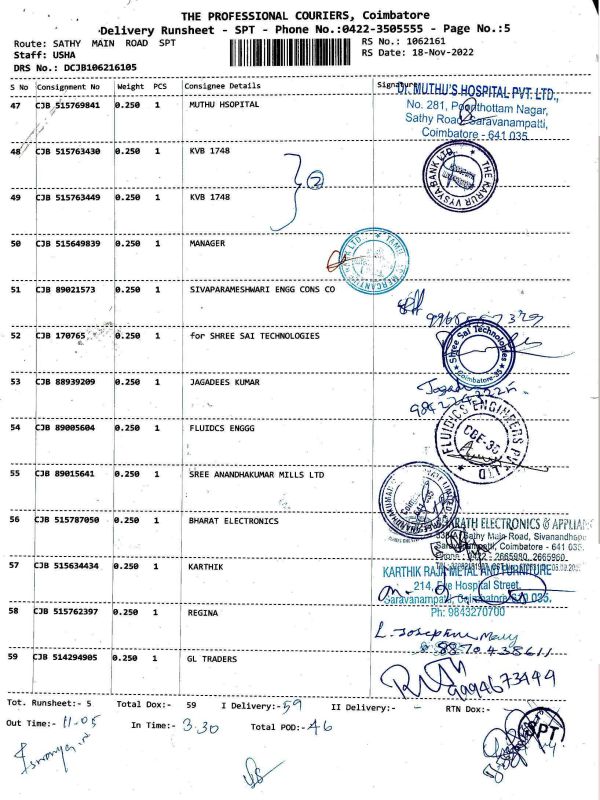 THE PROFESSIONAL COURIERS, Coimbatore
Delivery Runsheet - SPT - Phone No.:0422-3505555 - Page No.:5
Route: SATHY MAIN ROAD SPT
RS No.: 1062161
Staff: USHA
RS Date: 18-Nov-2022
DRS No.: DCJB106216105
S No Consignment No Weight PCS Consignee Details Signature
47 CJB 515769841 0.250 1 MUTHU HSOPITAL
Dr. MUTHU'S HOSPITAL PVT. LTD.,
No. 281, Poonthottam Nagar,
Sathy Road, Saravanampatti,
Coimbatore - 641 035.
48 CJB 515763430 0.250 1 KVB 1748
THE KARUR VYSYA BANK LTD.
2
49 CJB 515763449 0.250 1 KVB 1748
50 CJB 515649839 0.250 1 MANAGER
51 CJB 89021573 0.250 1 SIVAPARAMESHWARI ENGG CONS CO
52 CJB 170765 0.250 1 for SHREE SAI TECHNOLOGIES
Shree Sai Technologies
Coimbatore-35
53 CJB 88939209 0.250 1 JAGADEES KUMAR
54 CJB 89005604 0.250 1 FLUIDCS ENGGG
FLUIDCS ENGINEERS PVT LTD
CBE-35
55 CJB 89015641 0.250 1 SREE ANANDHAKUMAR MILLS LTD
56 CJB 515787050 0.250 1 BHARAT ELECTRONICS
BHARATH ELECTRONICS & APPLIAN
Sathy Main Road, Sivanandhapu
Saravanampatti, Coimbatore - 641 035.
Phone : 0422 - 2665980, 2665960
57 CJB 515634434 0.250 1 KARTHIK
KARTHIK RAJA METAL AND FURNITURE
214, Eye Hospital Street,
Saravanampatti, Coimbatore - 641 035.
Ph: 9843270700
58 CJB 515762397 0.250 1 REGINA
L. Josephine Mary
8870438611
59 CJB 514294905 0.250 1 GL TRADERS
9094673444
Tot. Runsheet:- 5 Total Dox:- 59 I Delivery:- 59 II Delivery:- - RTN Dox:- -
Out Time:- 11.05 In Time:- 3.30 Total POD:- 46
SPT